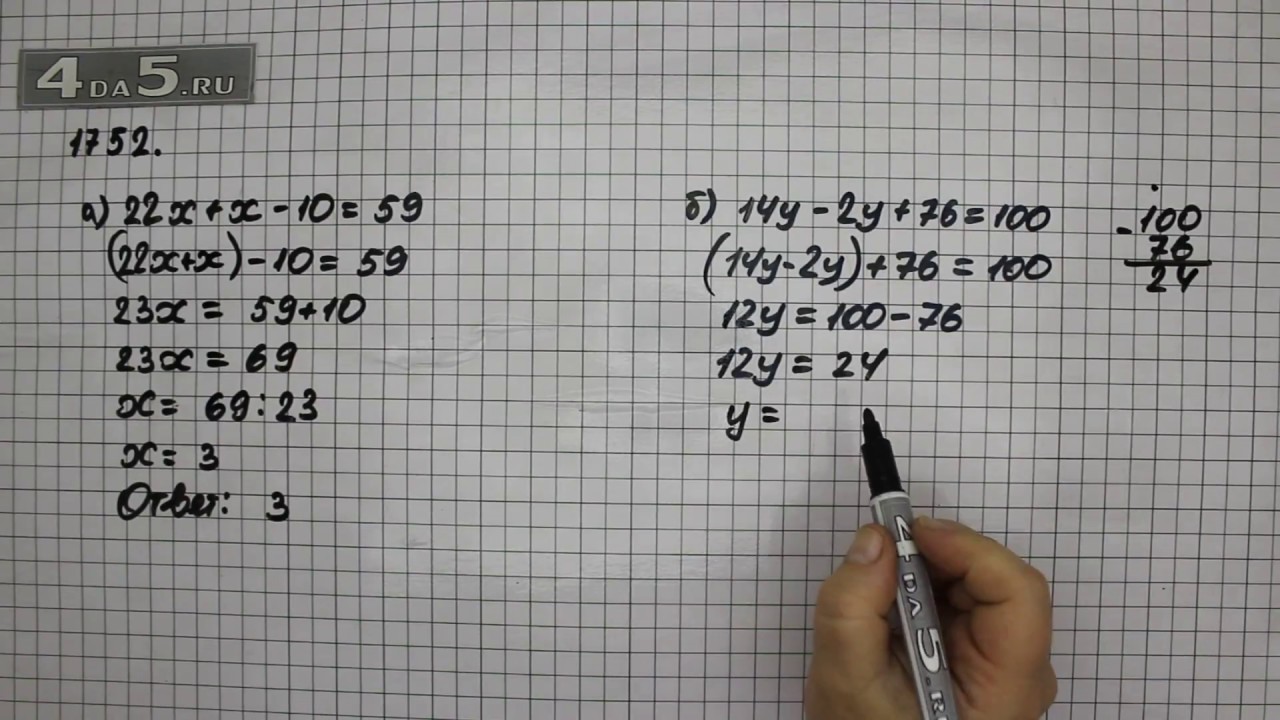 4DA5.RU
1752.
а) 22x + x - 10 = 59
(22x+x) - 10 = 59
23x = 59+10
23x = 69
x = 69:23
x = 3
Ответ: 3
б) 14y - 2y + 76 = 100
(14y-2y) + 76 = 100
12y = 100 - 76
12y = 24
y =
- 100
76
24
4DA5.R